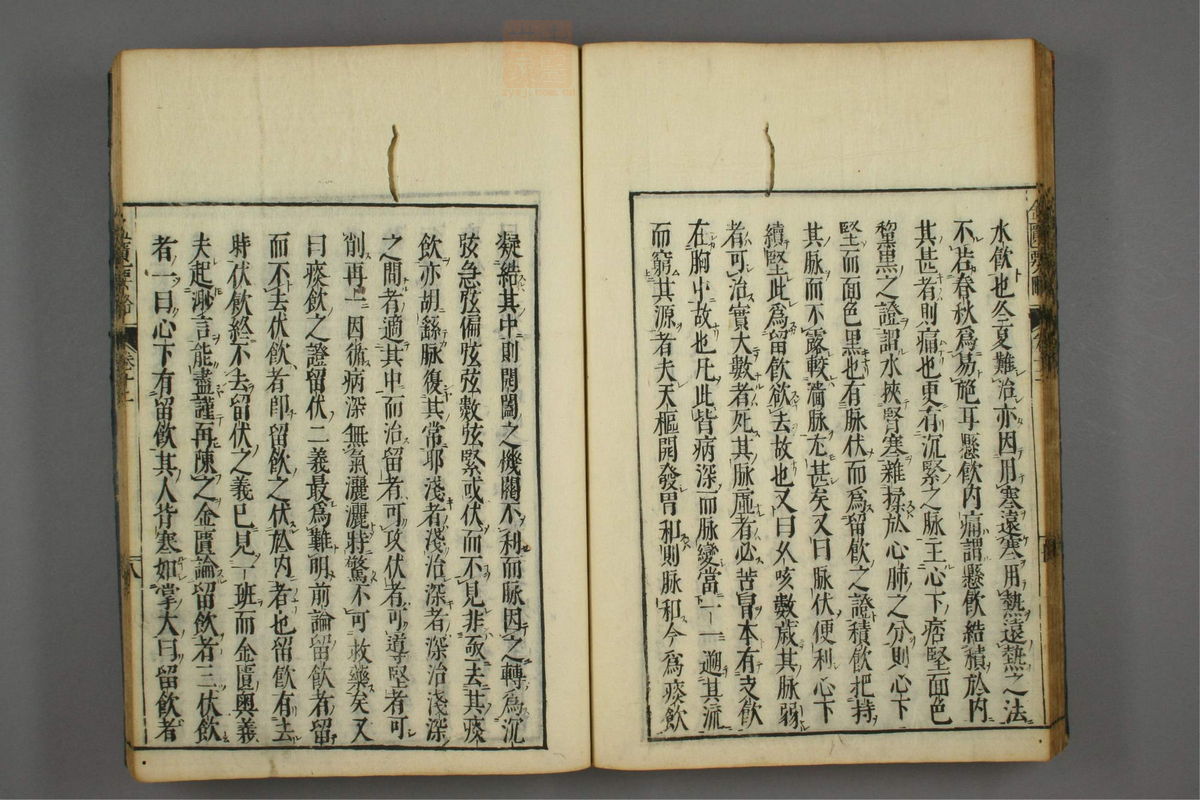 水飲也冬夏難治亦因用寒遠寒用熱遠熱之法
不若春秋爲易施耳懸飲内痛謂懸飲結積於内
其甚者則痛也更有沉緊之脉主心下痞堅面色
黧黒之證謂水挾腎寒雜揉於心肺之分則心下
堅而面色黒也有脉伏而爲留飲之證積飲把持
其脉而不露較濇脉尤甚矣又曰脉伏便利心下
續堅此爲留飲欲去故也又曰久咳數歳其脉弱
者可治實大數者死其脉虚者必苦冒本有支飲
在胸中故也凡此皆病深而脉變當一一遡其流
而窮其源者夫天樞開發胃和則脉和今爲痰飲
凝結其中則開闔之機關不利而脉因之轉爲沉
弦急弦偏弦弦數弦緊或伏而不見非亟去其痰
飲亦胡繇脉復其常耶淺者淺治深者深治淺深
之間者適其中而治留者可攻伏者可導堅者可
削再一因循病深無氣灑灑時驚不可救藥矣又
曰痰飲之證留伏二義最爲難明前論留飲者留
而不去伏飲者即留飲之伏於内者也留飲有去
時伏飲終不去留伏之義已見一班而金匱奥義
夫起渺言能盡謹再陳之金匱論留飲者三伏飲
者一曰心下有留飲其人背寒如掌大曰留飲者
卷十二
八